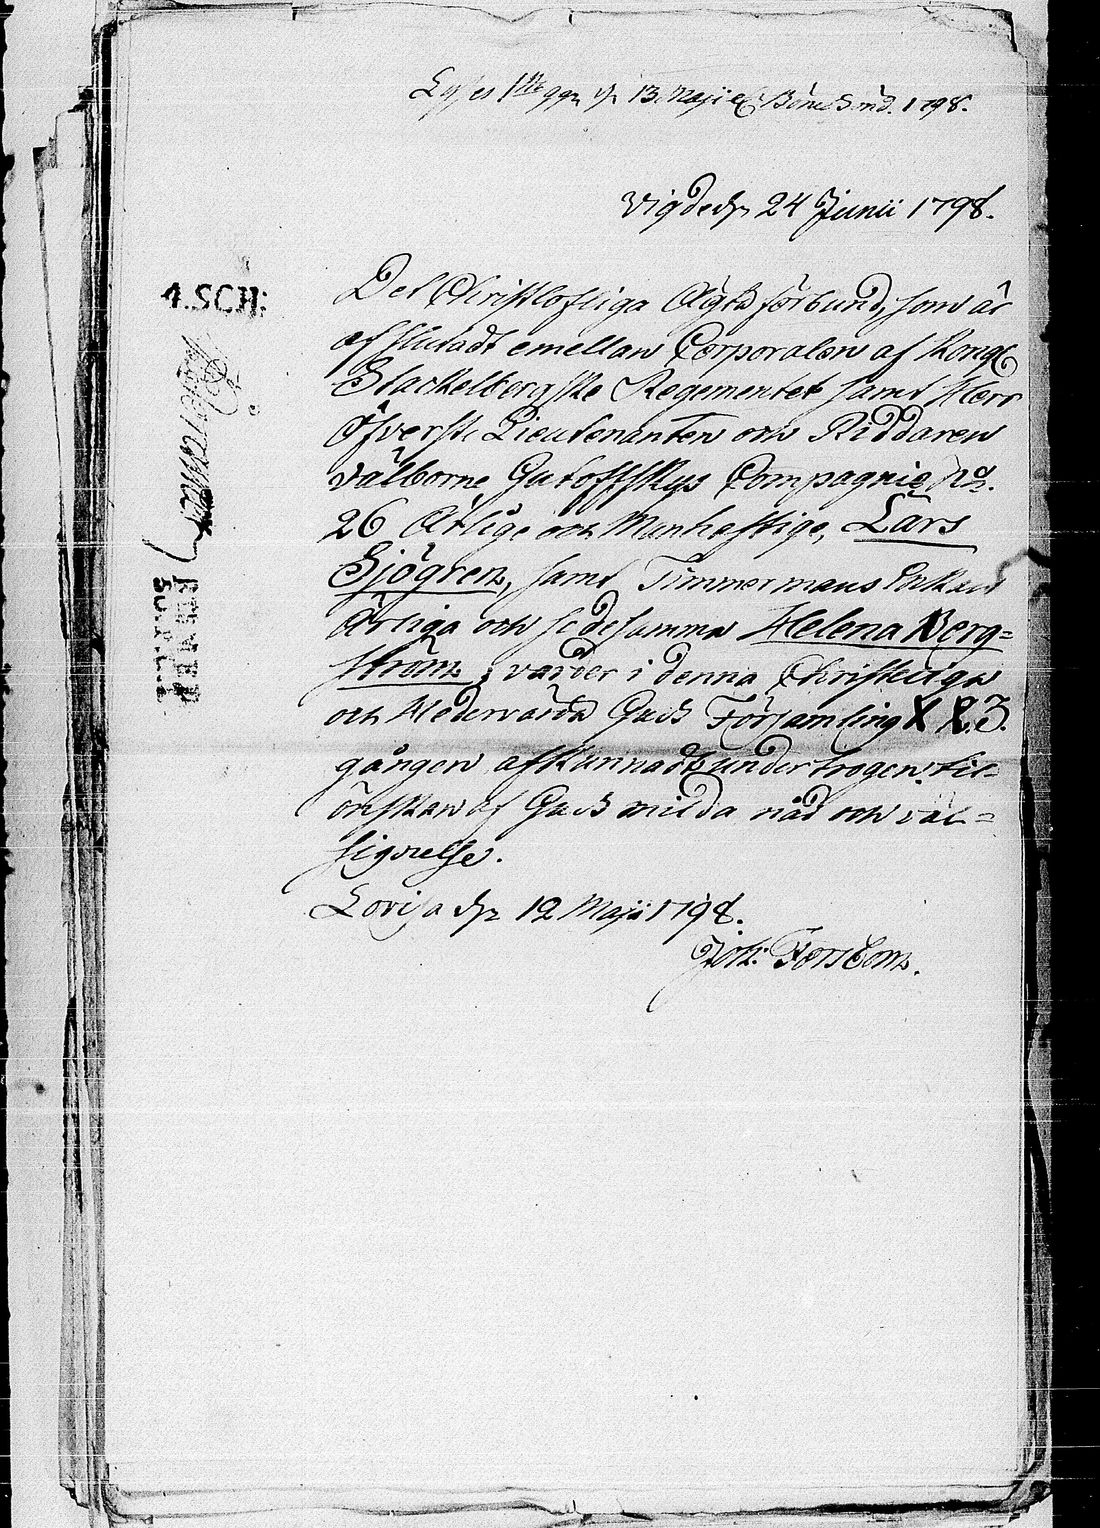 Lyses 1:sta ggn d. 13. Maji 1798.
Vigde d. 24 Junii 1798.
4.SCH:
Det Christlofliga Ägta förbund, som är
afslutadt emellan Corporalen af Kongl
Stackelbergske Regementet samt Herr
Öfverste Lieutenanten och Riddaren
välborne Gutoffskys Compagnie No.
26 Ärlige och Manhaftige, Lars
Sjögren, samt Timmermans Enkan
Ärliga och sedesamma Helena Berg=
ström; varder i denna Christeliga
och Hedervärda Guds Församling 3.
gången afkunnadt under trogen til-
önskan af Guds milda nåd och väl=
signelse.
Lovisa d. 12 Maji 1798.
Joh: Forsbom.